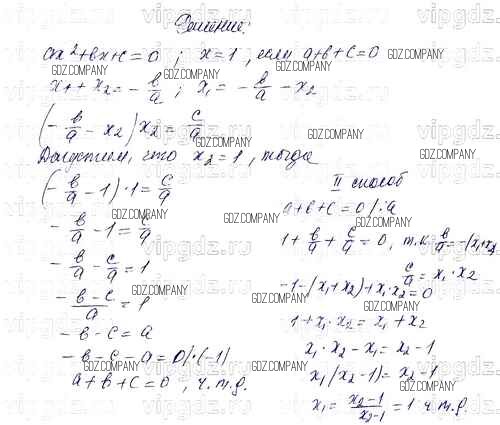 Решение:
ax²+bx+c=0 ; x=1, если a+b+c=0
x₁+x₂=-b/a ; x₁=-b/a-x₂
(-b/a-x₂)x₂=c/a
Допустим, что x₂=1, тогда
(-b/a-1)·1=c/a
-b/a-1=c/a
-b/a-c/a=1
(-b-c)/a=1
-b-c=a
-b-c-a=0/·(-1)
a+b+c=0, ч.т.д.
II способ
a+b+c=0/:a
1+b/a+c/a=0, т.к. b/a=-(x₁+x₂
c/a=x₁·x₂
-1-(x₁+x₂)+x₁·x₂=0
1+x₁·x₂=x₁+x₂
x₁·x₂-x₁=x₂-1
x₁(x₂-1)=x₂-1
x₁=(x₂-1)/(x₂-1)=1 ч.т.д.
GDZ.COMPANY
vipgdz.ru